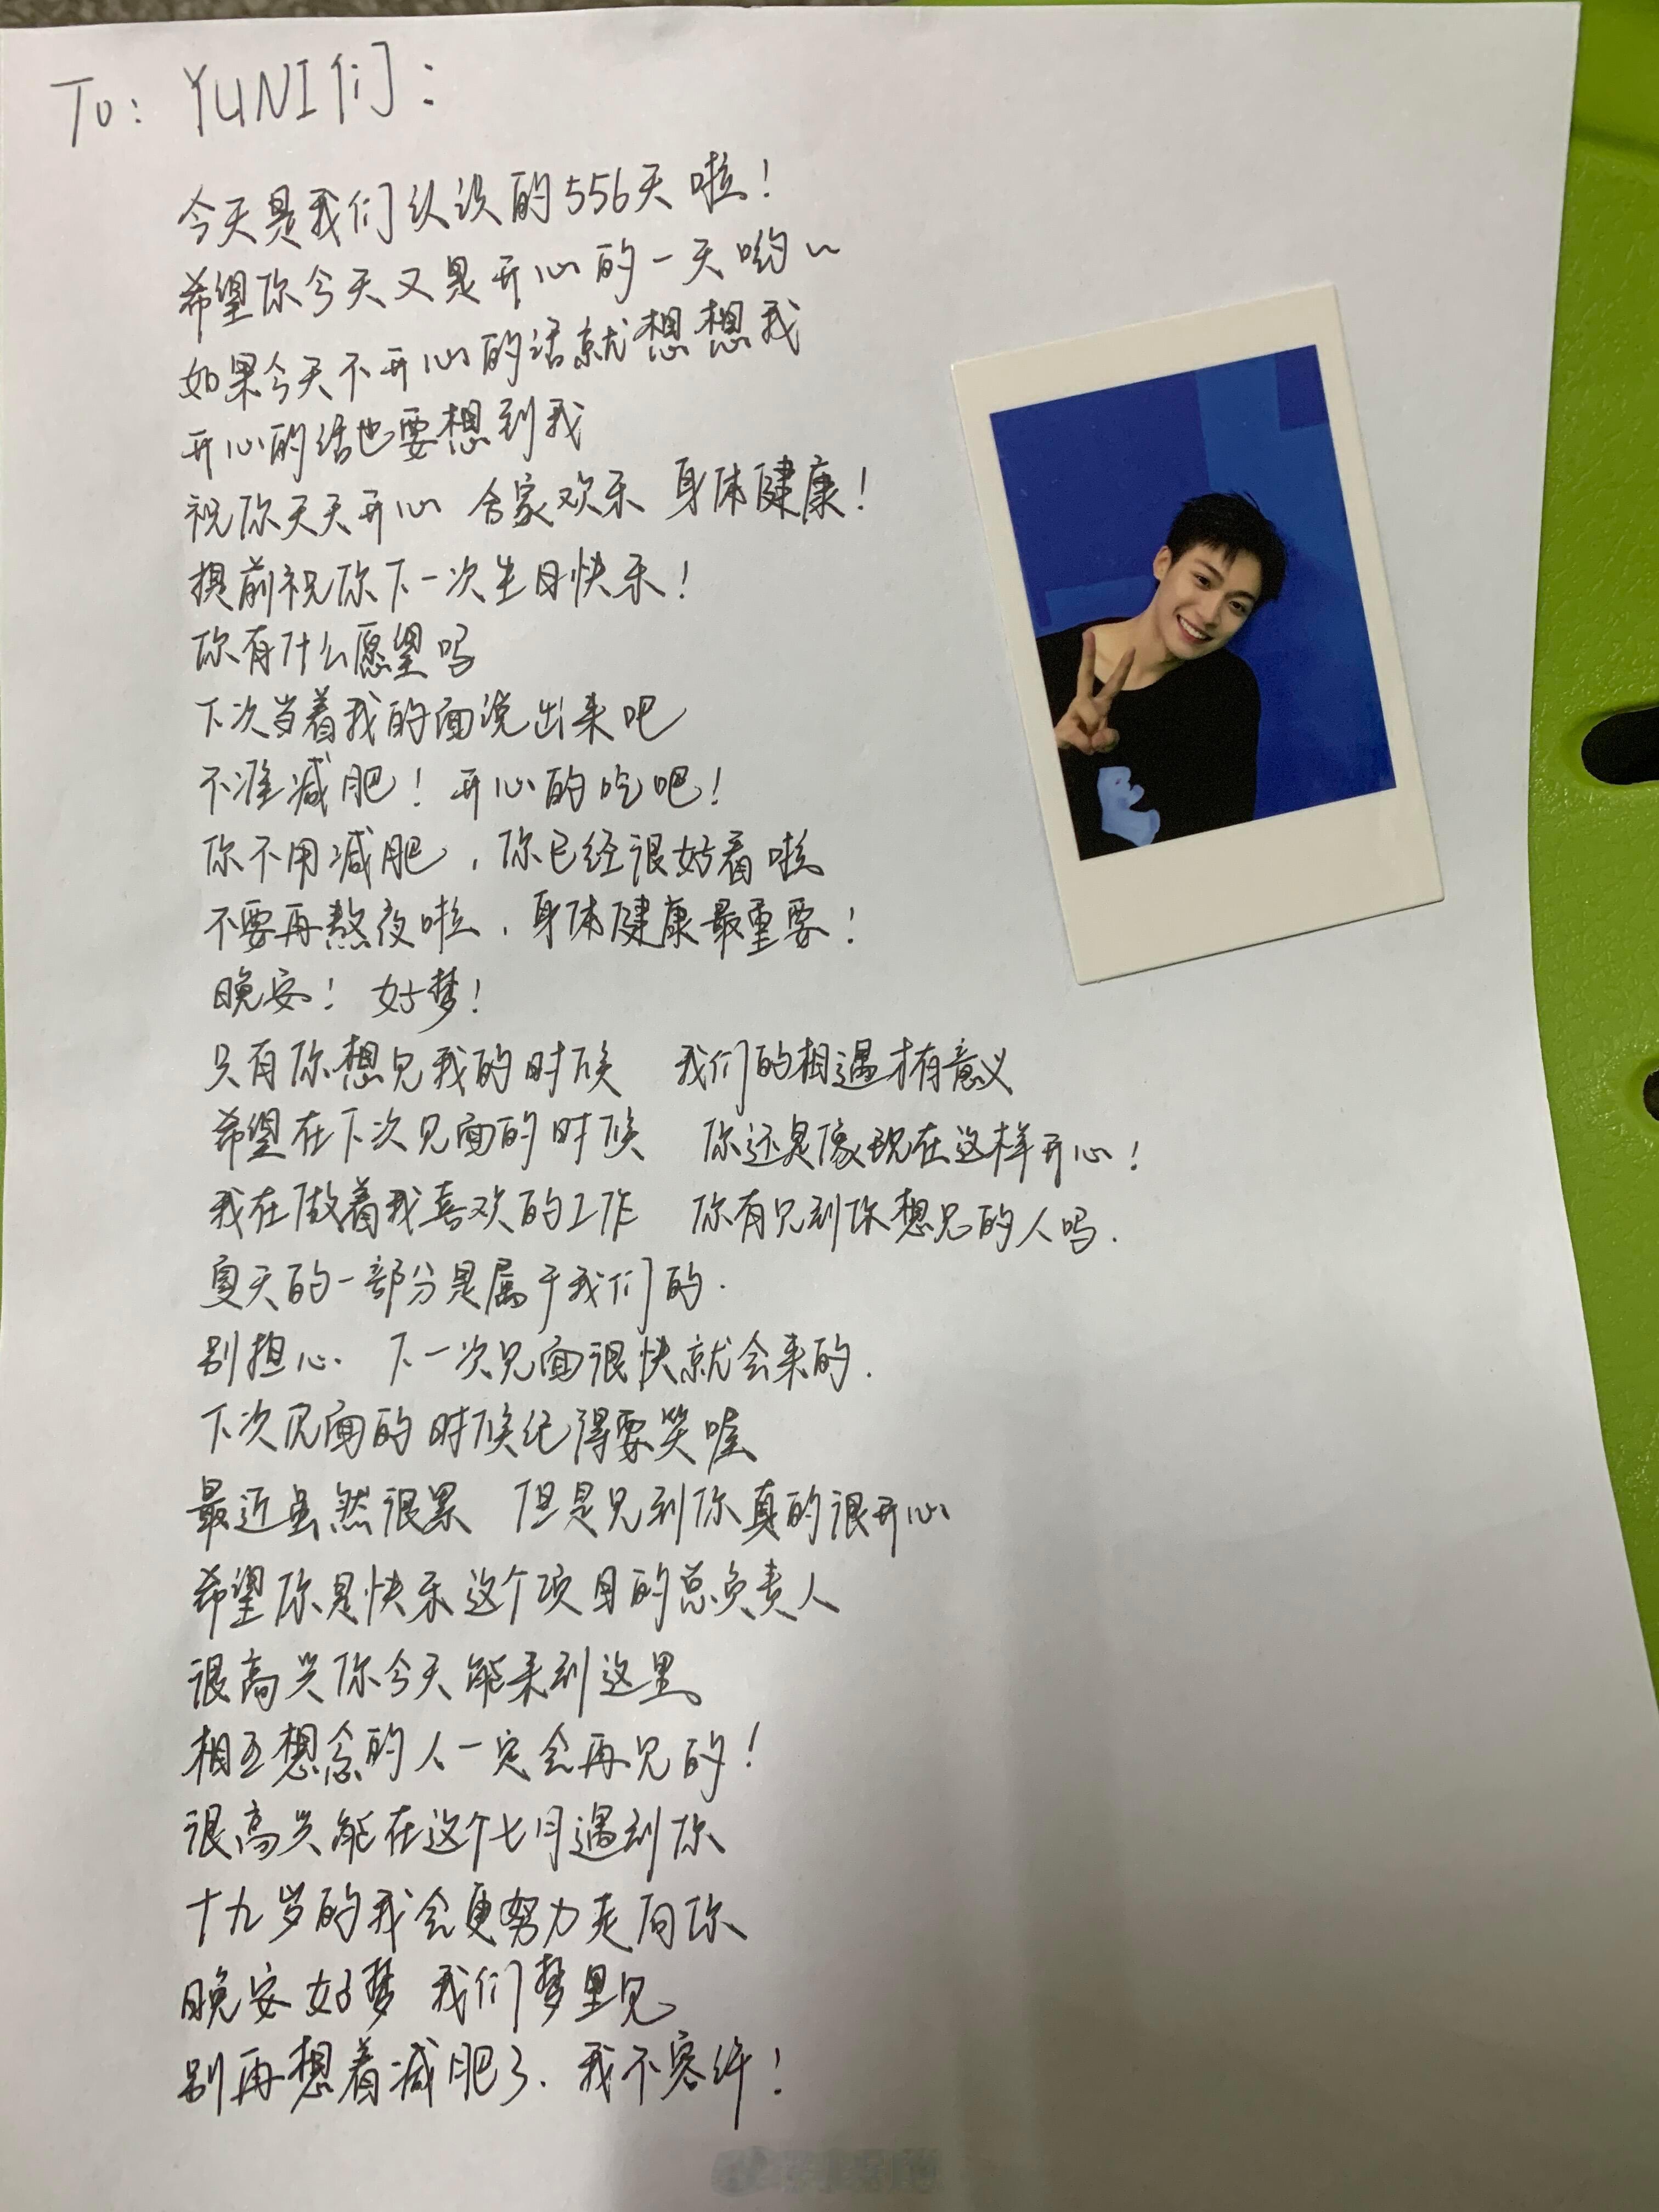 To: YUNI们:
今天是我们认识的556天啦!
希望你今天又是开心的一天哟~
如果今天不开心的话就想想我
开心的话也要想到我
祝你天天开心 合家欢乐 身体健康!
提前祝你下一次生日快乐!
你有什么愿望吗
下次当着我的面说出来吧
不准减肥! 开心的吃吧!
你不用减肥,你已经很好看啦
不要再熬夜啦,身体健康最重要!
晚安! 好梦!
只有你想见我的时候 我们的相遇才有意义
希望在下次见面的时候 你还是像现在这样开心!
我在做着我喜欢的工作 你有见到你想见的人吗.
夏天的一部分是属于我们的.
别担心. 下一次见面很快就会来的.
下次见面的时候记得要笑喔
最近虽然很累 但是见到你真的很开心
希望你是快乐这个项目的总负责人
很高兴你今天能来到这里
相互想念的人一定会再见的!
很高兴能在这个七月遇到你
十九岁的我会更努力走向你
晚安好梦 我们梦里见
别再想着减肥了. 我不容许!